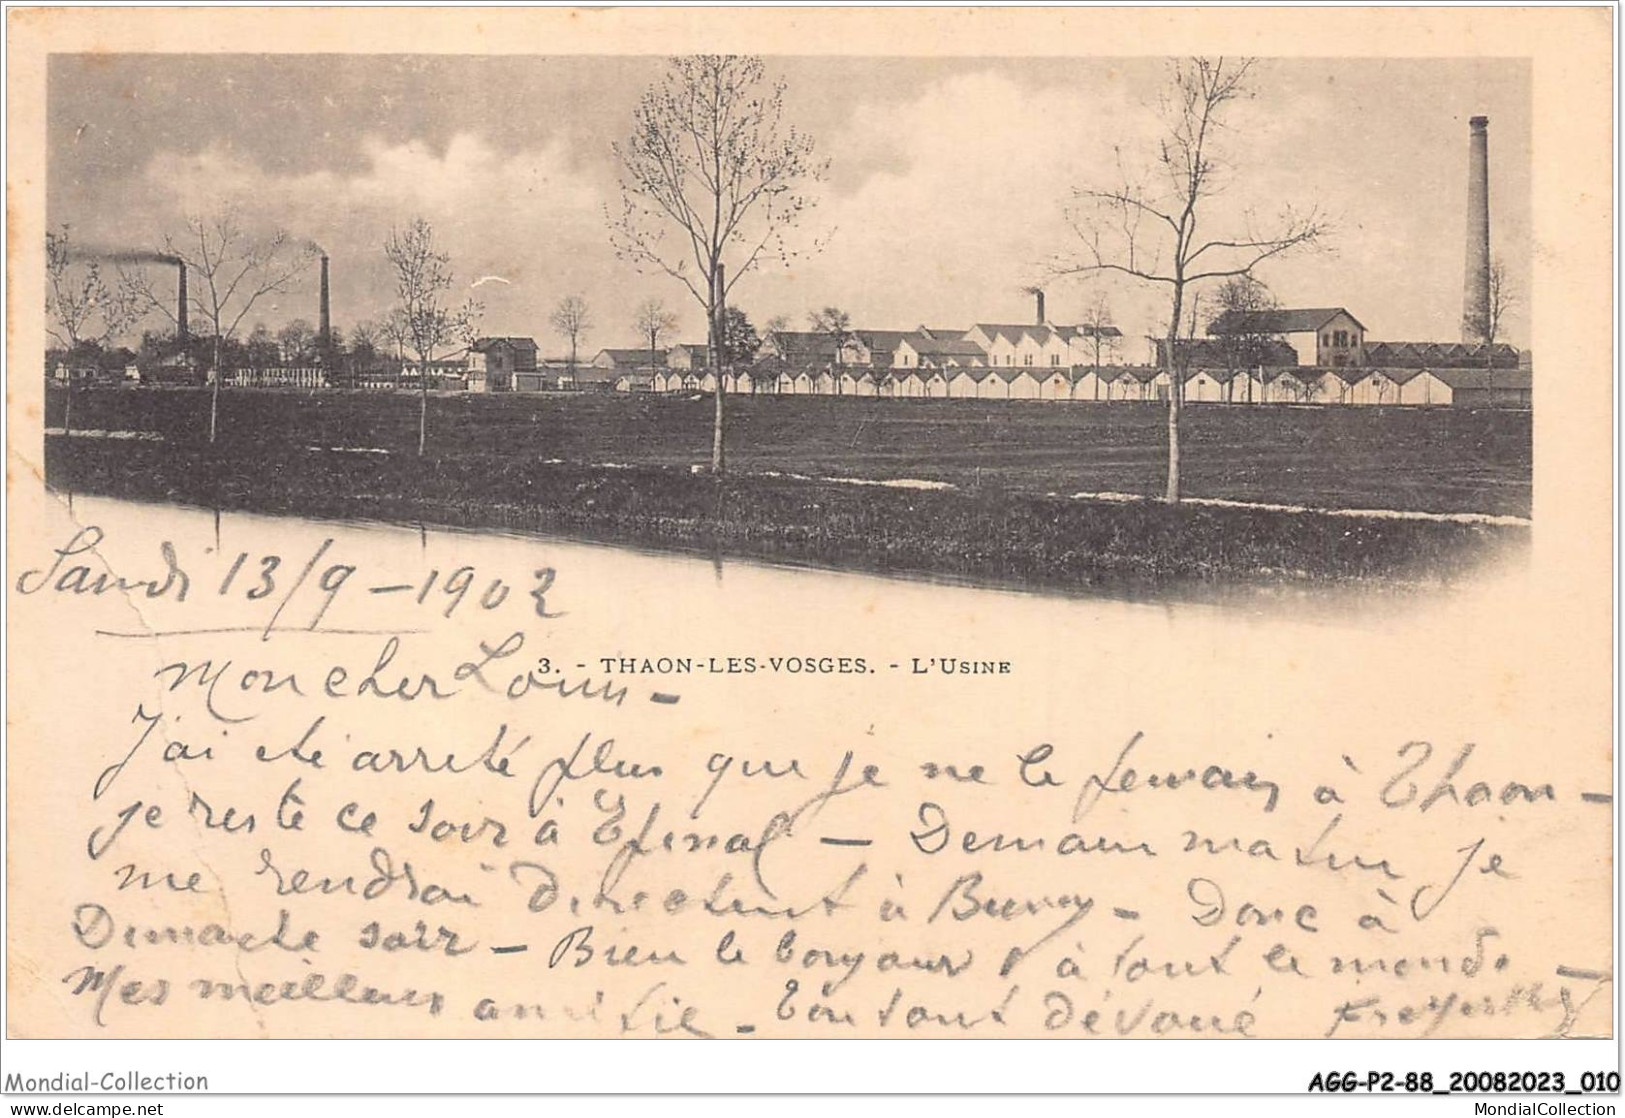 Samdi 13/9 - 1902
3. - THAON-LES-VOSGES. - L'USINE
Mon cher Louis -
J'ai été arreté plus que je ne le pensais à Thaon -
je reste ce soir à Epinal - Demain matin je
me rendrai directement à - Donc à
Dimanche soir - Bien le bonjour à tout le monde -
Mes meilleurs amitié - Ton tout dévoué
Mondial-Collection
AGG-P2-88_20082023_010
www.delcampe.net
MondialCollection